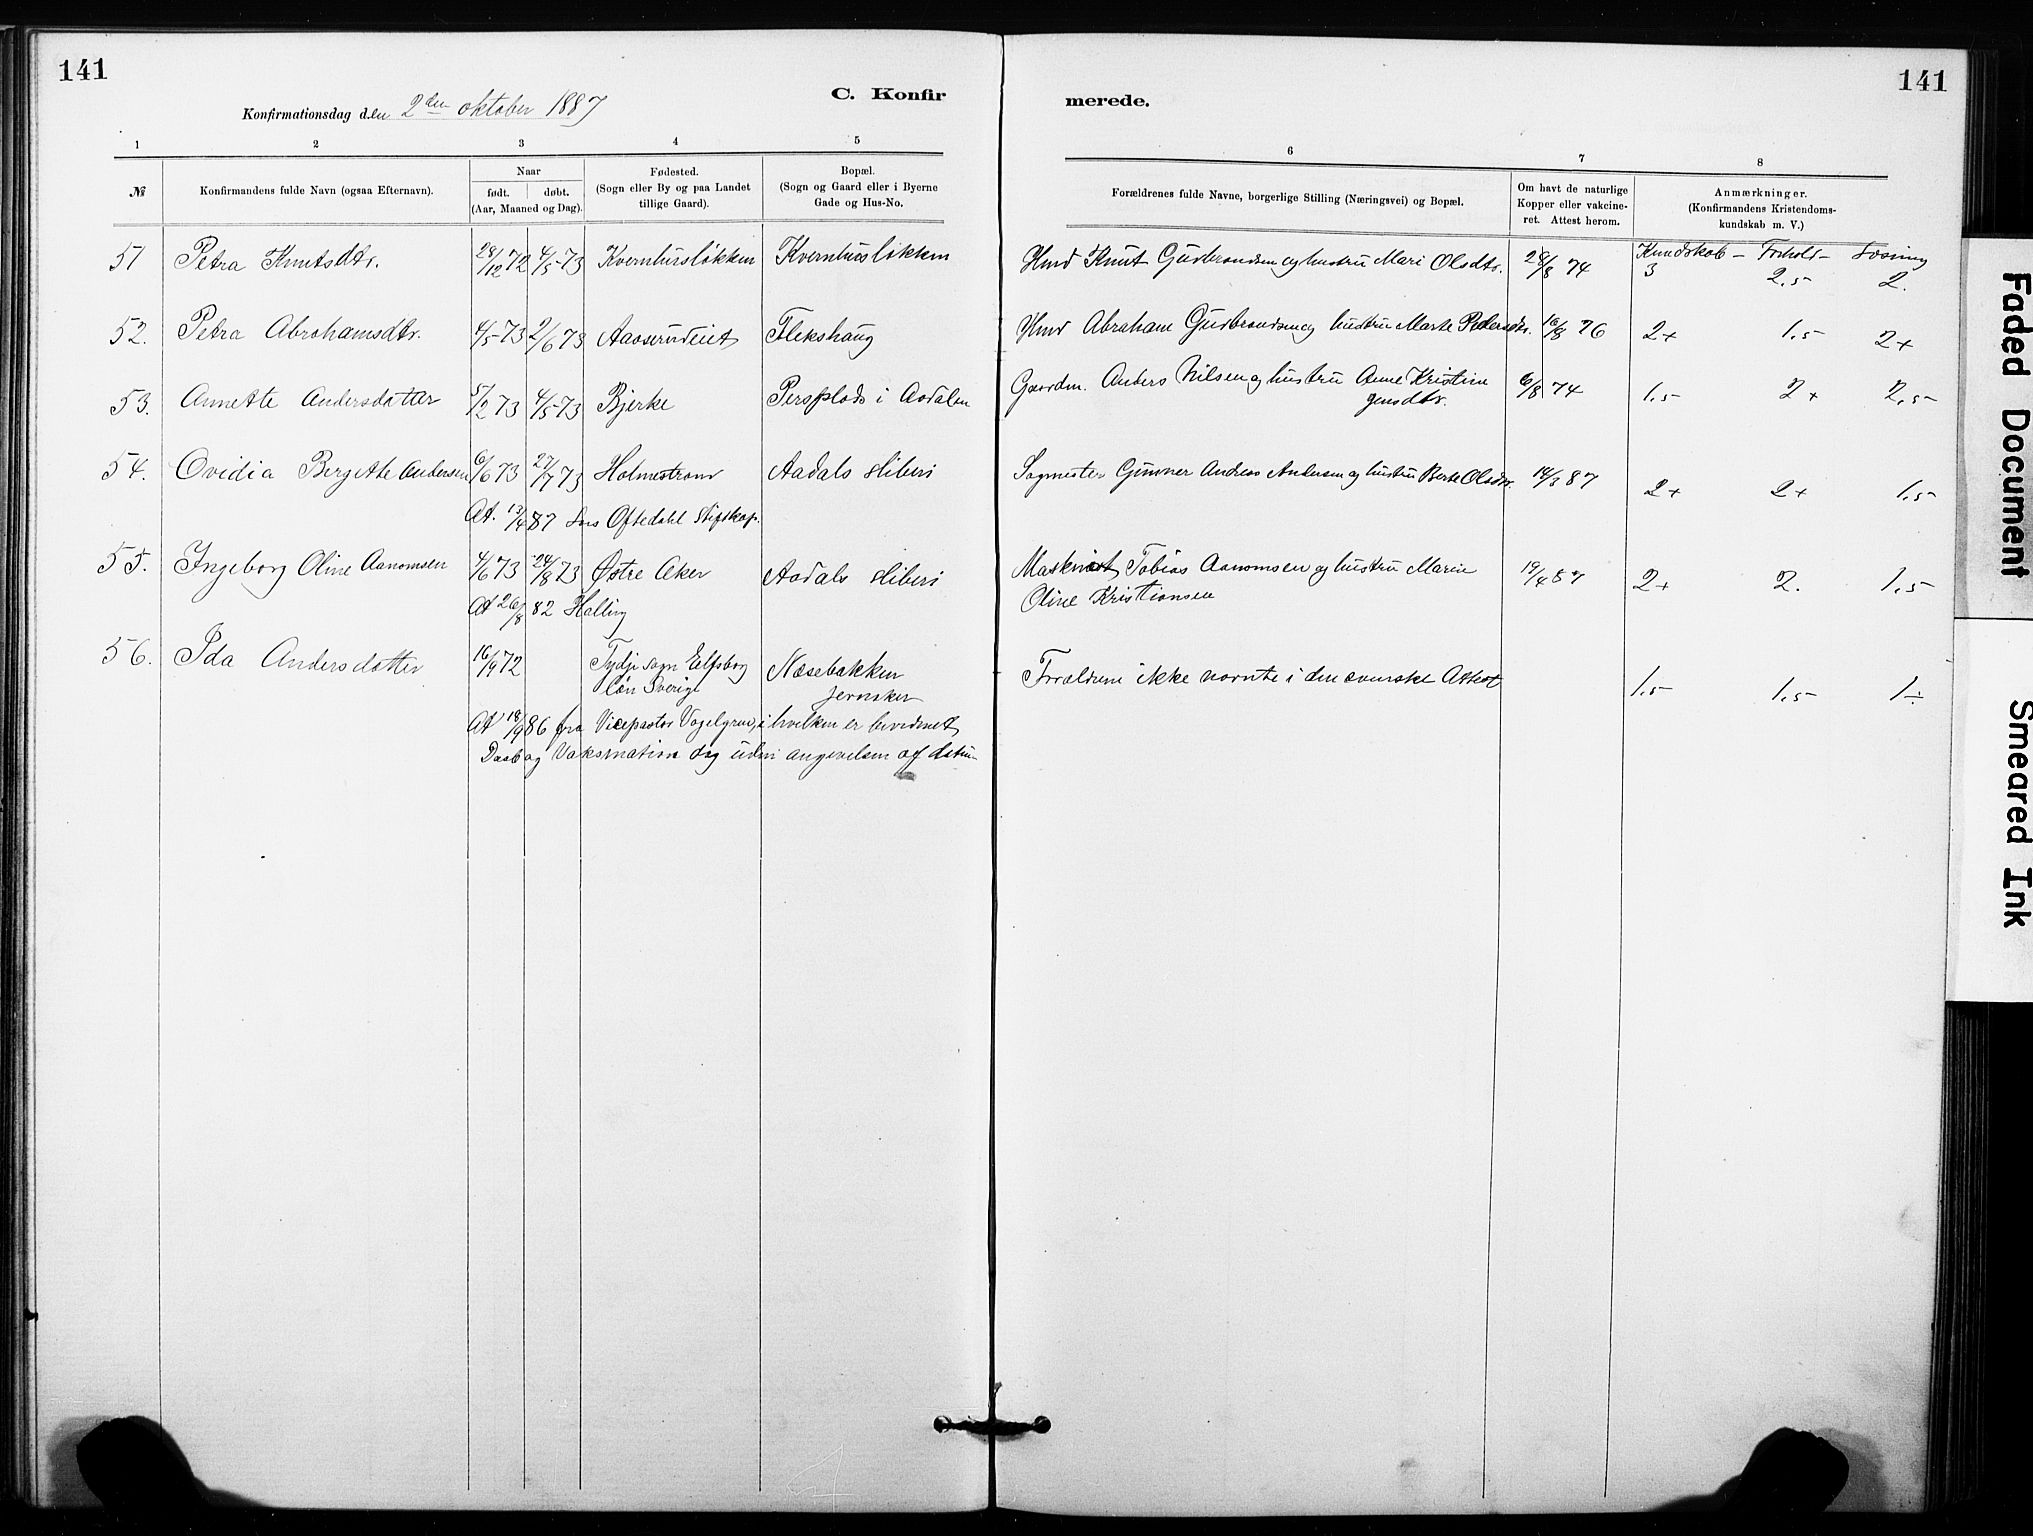 141
141
C. Konfir
merede.
Konfirmationsdag den 2den oktober 1887
1 2 3 4 5
6 7 8
№ Konfirmandens fulde Navn (ogsaa Efternavn). Naar født. døbt. (Aar, Maaned og Dag). Fødested. (Sogn eller By og paa Landet tillige Gaard). Bopæl. (Sogn og Gaard eller i Byerne Gade og Hus-No.
Forældrenes fulde Navne, borgerlige Stilling (Næringsvei) og Bopæl. Om havt de naturlige Kopper eller vakcineret. Attest herom. Anmærkninger. (Konfirmandens Kristendomskundskab m. V.)
51 Petra Knutsdtr. 28/12 72 4/5 73 Kvernhusløkken Kvernhusløkken Hmd Knut Gudbrandsen og hustru Mari Olsdtr. 28/8 74 Kundskab – Forhold – Læsning
3 2,5 2.
52. Petra Abrahamsdtr. 4/5 73 2/6 73 Aaserudeiet Flekshaug Hmd Abraham Gudbrandsen og hustru Marte Pedersdtr. 16/8 76 2+ 1,5 2+
53. Annette Andersdatter 5/2 73 4/5 73 Bjerke Persplads i Aadalen Gaardm. Anders Nilsen og hustru Anne Kristine
Jensdtr. 6/8 74 1,5 2+ 2,5
54. Ovidia Bergette Andersen 6/6 73 27/7 73 Holmestrand Aadals sliberi Sagmester Gunner Andreas Andersen og hustru Berte Olsdtr. 14/3 87 2+ 2+ 1,5
At. 13/4 87 Lars Oftedahl Stiftskap.
55. Ingeborg Oline Aanomsen 4/6 73 24/8 73 Østre Aker Aadals sliberi Maskinist Tobias Aanomsen og hustru Marie
Oline Kristiansen 19/4 87 2+ 2. 1,5
At 26/8 82 Halling
56. Ida Andersdatter 16/9 72 Tydje sogn Elfsborg
län Sverige Næsebakken
Jevnaker Forældrene ikke nævnte i den svenske Attest 1,5 1,5 1÷
At 18/9 86 fra Vicepastor Vogelgren, i hvilken er bevidnet
Daab og Vaksination dog uden angivelsen af datum
Faded Document
Smeared Ink